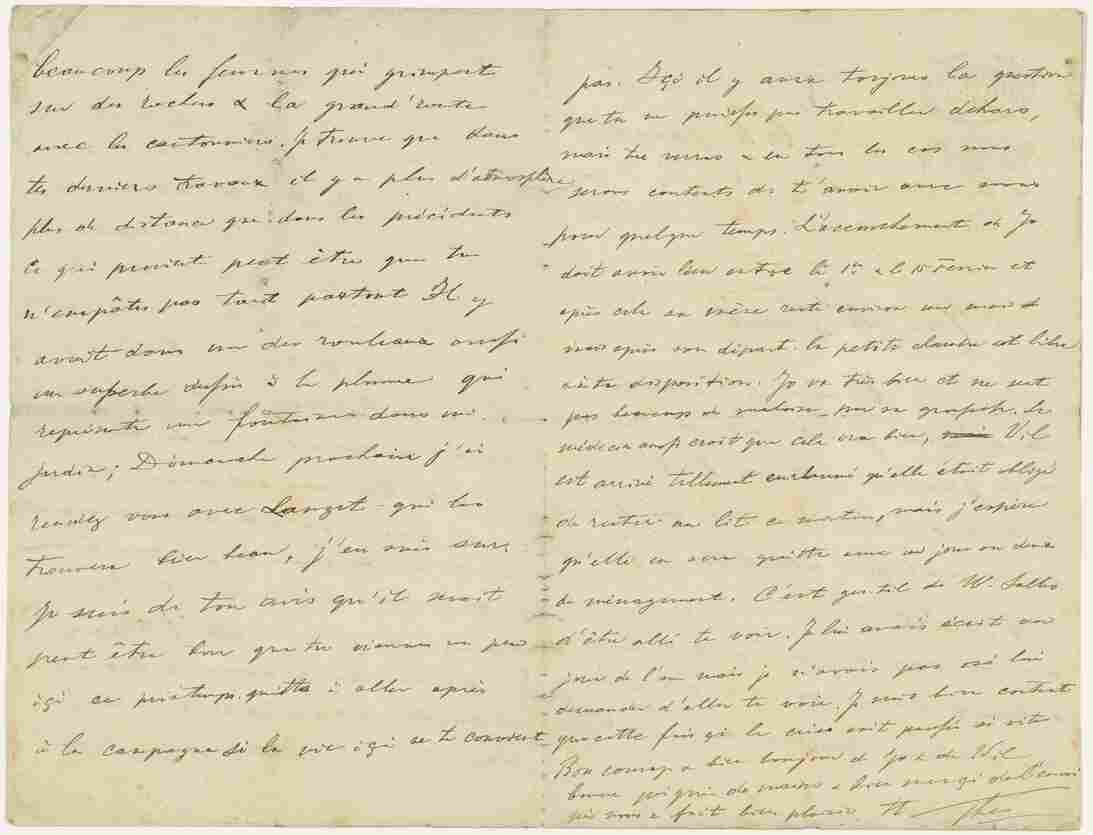 beaucoup les femmes qui grimpent
sur des rochers & la grand'route
avec les cantonniers. Je trouve que dans
tes derniers travaux il y a plus d'atmosphère
plus de distance que dans les précédents
ce qui provient peut être que tu
n'empâtes pas tant partout Il y
avait dans un des rouleaux aussi
un superbe dessin à la plume qui
représente une fontaine dans un
jardin; Dimanche prochain j'ai
rendez vous avec Lauzet qui les
trouvera bien beau, j'en suis sur.
Je suis de ton avis qu'il serait
peut être bon que tu viennes un peu
içi ce printemps quitte à aller après
à la campagne si la vie içi ne te convient
pas. Içi il y aura toujours la question
que tu ne puisses pas travailler dehors,
mais tu verras & en tous les cas nous
serons contents de t'avoir avec nous
pour quelque temps. L'accouchement de Jo
doit avoir lieu entre le 1er & le 10 Fevrier et
après cela sa mère reste environ un mois &
mais après son départ la petite chambre est libre
à ta disposition. Jo va très bien et ne sent
pas beaucoup de malaise par sa grossesse. Le
médecin aussi croit que cela ira bien, Wil
est arrivé tellement enrhumé qu'elle était obligé
de rester au lit ce matin, mais j'espère
qu'elle en sera quitte avec un jour ou deux
de ménagement. C'est gentil de Mr. Salles
d'être allé te voir. Je lui avais écrit au
jour de l'an mais je n'avais pas osé lui
demander d'aller te voir. Je suis bien content
que cette fois çi la crise soit passée si vite
Bon courage & bien bonjour de Jo & de Wil
bonne poignée de mains & bien merçi de l'envoi
qui nous a fait bien plaisir. Theo